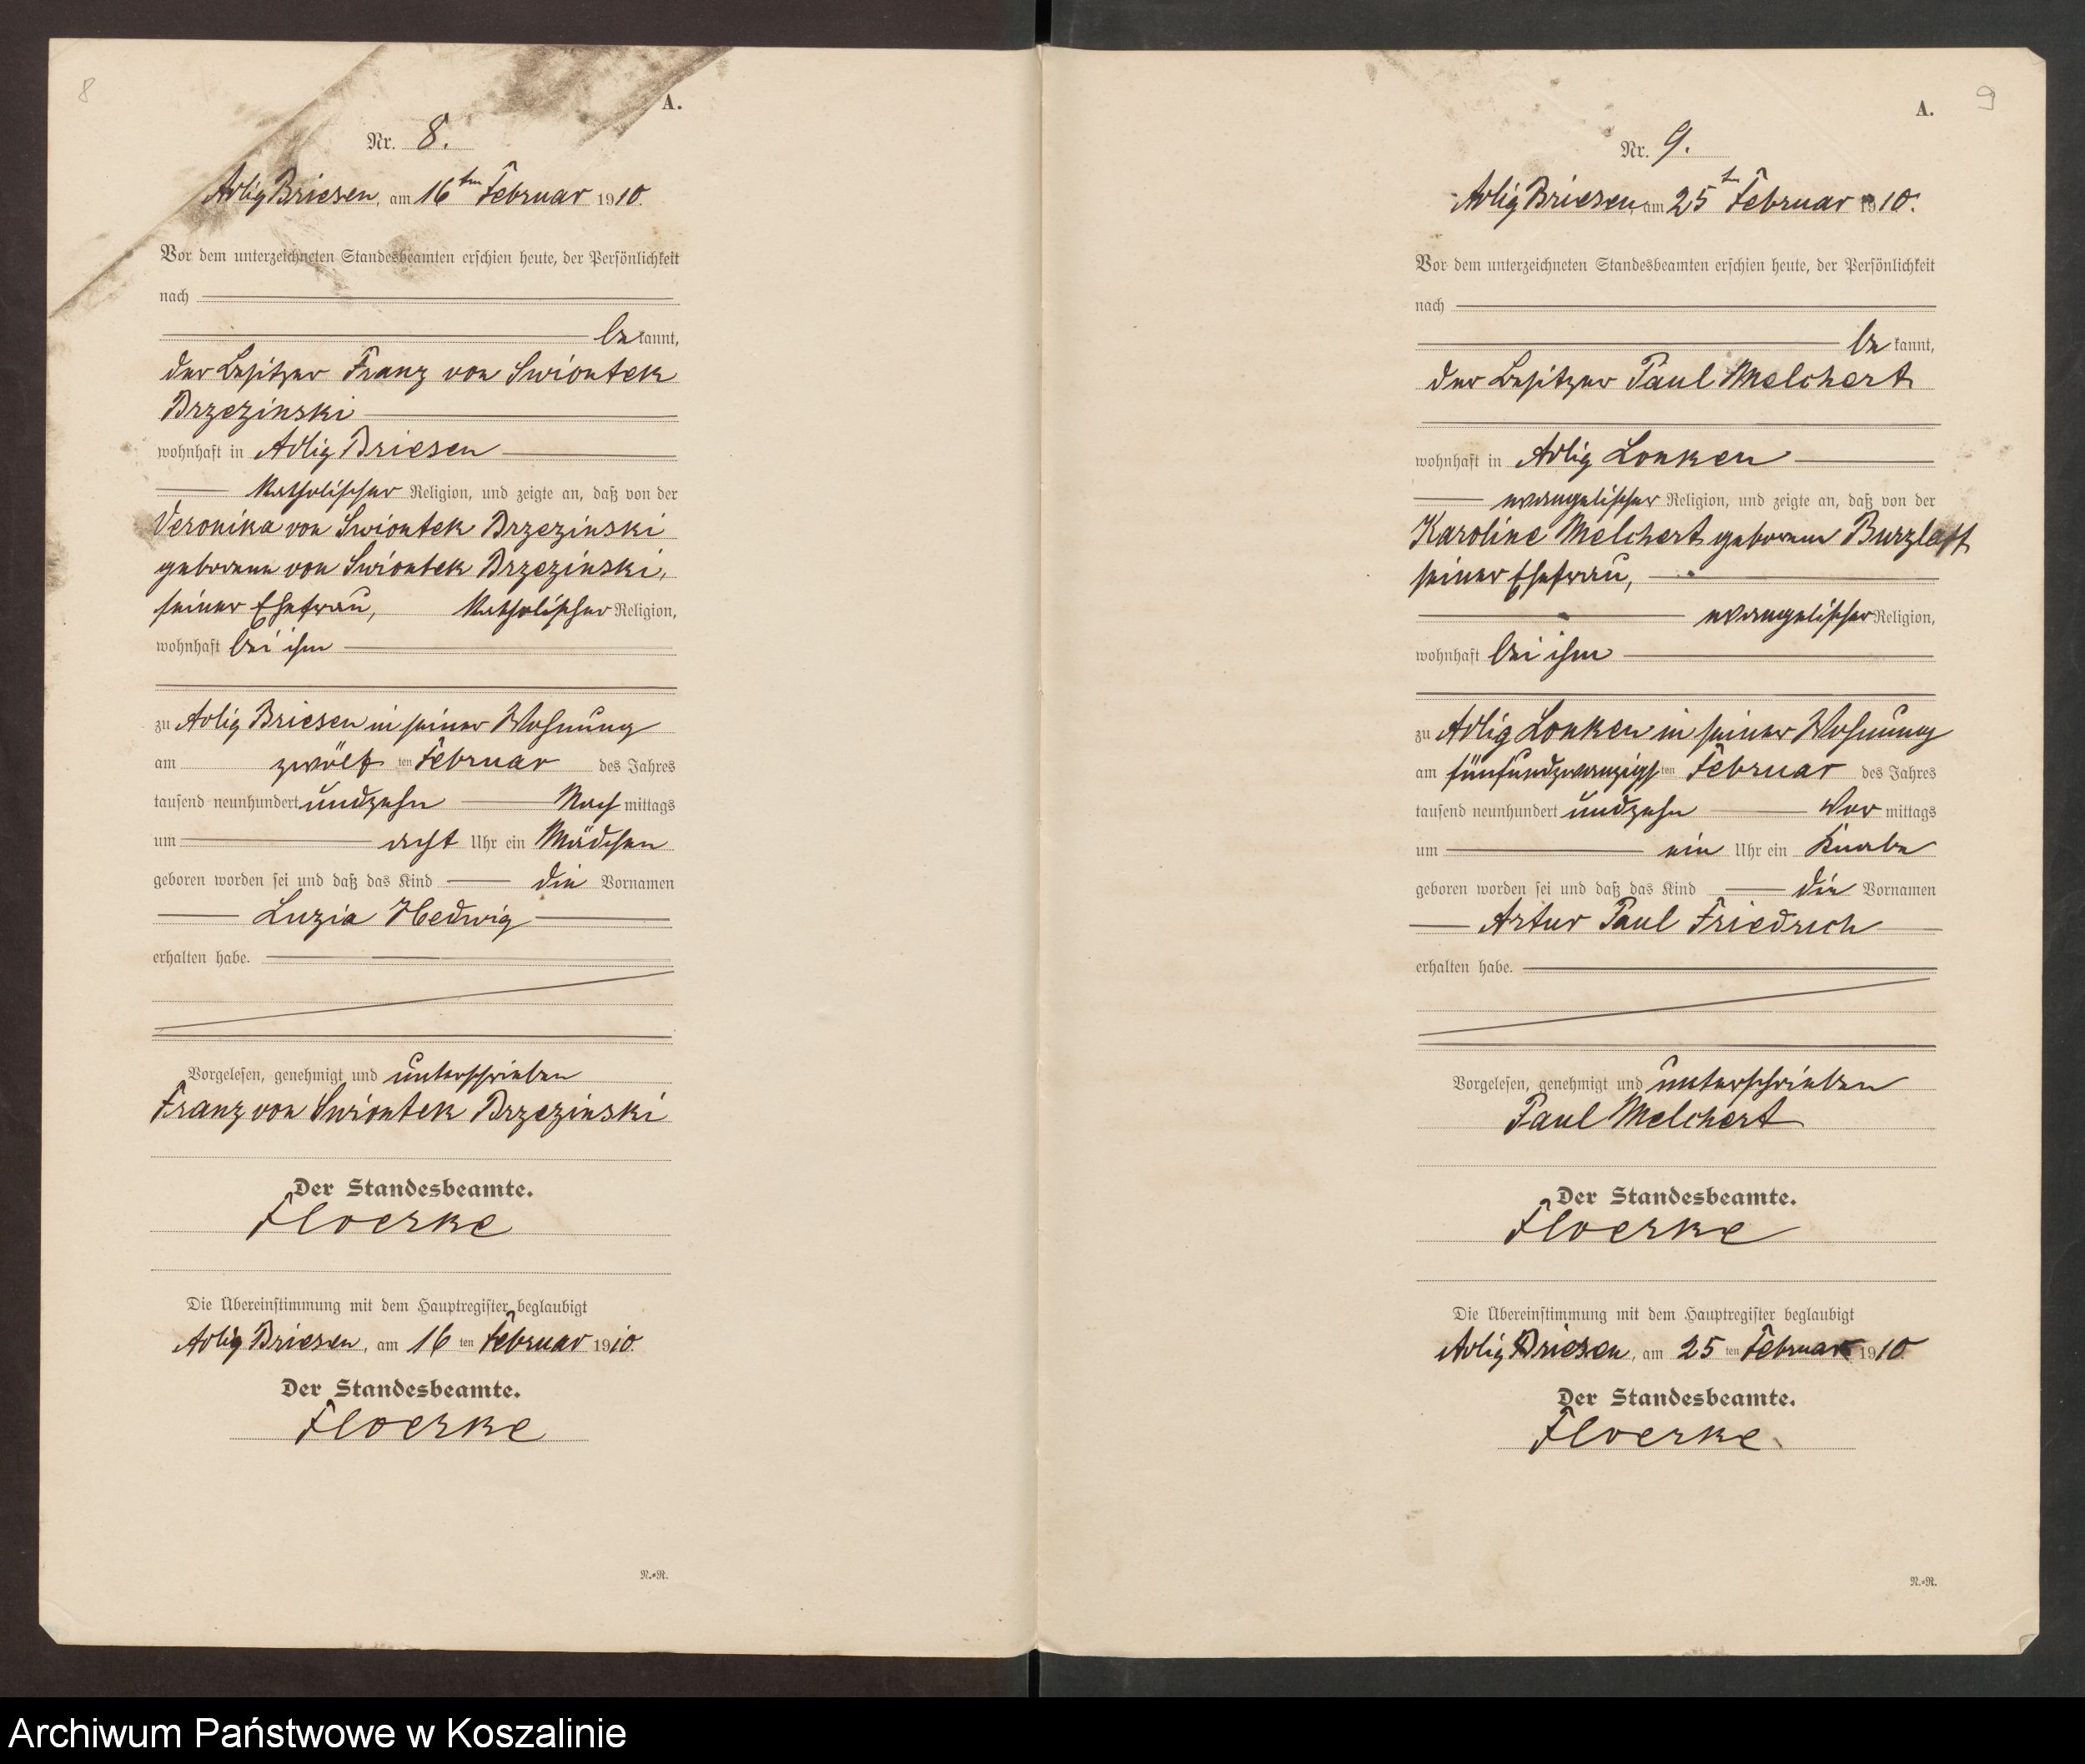 8
A.
Nr. 8.
Adlig Briesen, am 16ten Februar 1910.
Vor dem unterzeichneten Standesbeamten erschien heute, der Persönlichkeit
nach
bekannt,
der Besitzer Franz von Swiontek
Brzezinski
wohnhaft in Adlig Briesen
katholischer Religion, und zeigte an, daß von der
Veronika von Swiontek Brzezinski
geborene von Swiontek Brzezinski,
seiner Ehefrau, katholischer Religion,
wohnhaft bei ihm
zu Adlig Briesen in seiner Wohnung
am zwölften Februar des Jahres
tausend neunhundert undzehn Nachmittags
um acht Uhr ein Mädchen
geboren worden sei und daß das Kind die Vornamen
Luzia Hedwig
erhalten habe.
Vorgelesen, genehmigt und unterschrieben
Franz von Swiontek Brzezinski
Der Standesbeamte.
Floerke
Die Übereinstimmung mit dem Hauptregister beglaubigt
Adlig Briesen, am 16ten Februar 1910.
Der Standesbeamte.
Floerke
N.=R.
9
A.
Nr. 9.
Adlig Briesen, am 25ten Februar 1910.
Vor dem unterzeichneten Standesbeamten erschien heute, der Persönlichkeit
nach
bekannt,
der Besitzer Paul Melchert
wohnhaft in Adlig Lonken
evangelischer Religion, und zeigte an, daß von der
Karoline Melchert geborene Burzlaff
seiner Ehefrau,
evangelischer Religion,
wohnhaft bei ihm
zu Adlig Lonken in seiner Wohnung
am fünfundzwanzigsten Februar des Jahres
tausend neunhundert undzehn Vormittags
um ein Uhr ein Knabe
geboren worden sei und daß das Kind die Vornamen
Artur Paul Friedrich
erhalten habe.
Vorgelesen, genehmigt und unterschrieben
Paul Melchert
Der Standesbeamte.
Floerke
Die Übereinstimmung mit dem Hauptregister beglaubigt
Adlig Briesen, am 25ten Februar 1910
Der Standesbeamte.
Floerke
N.=R.
Archiwum Państwowe w Koszalinie